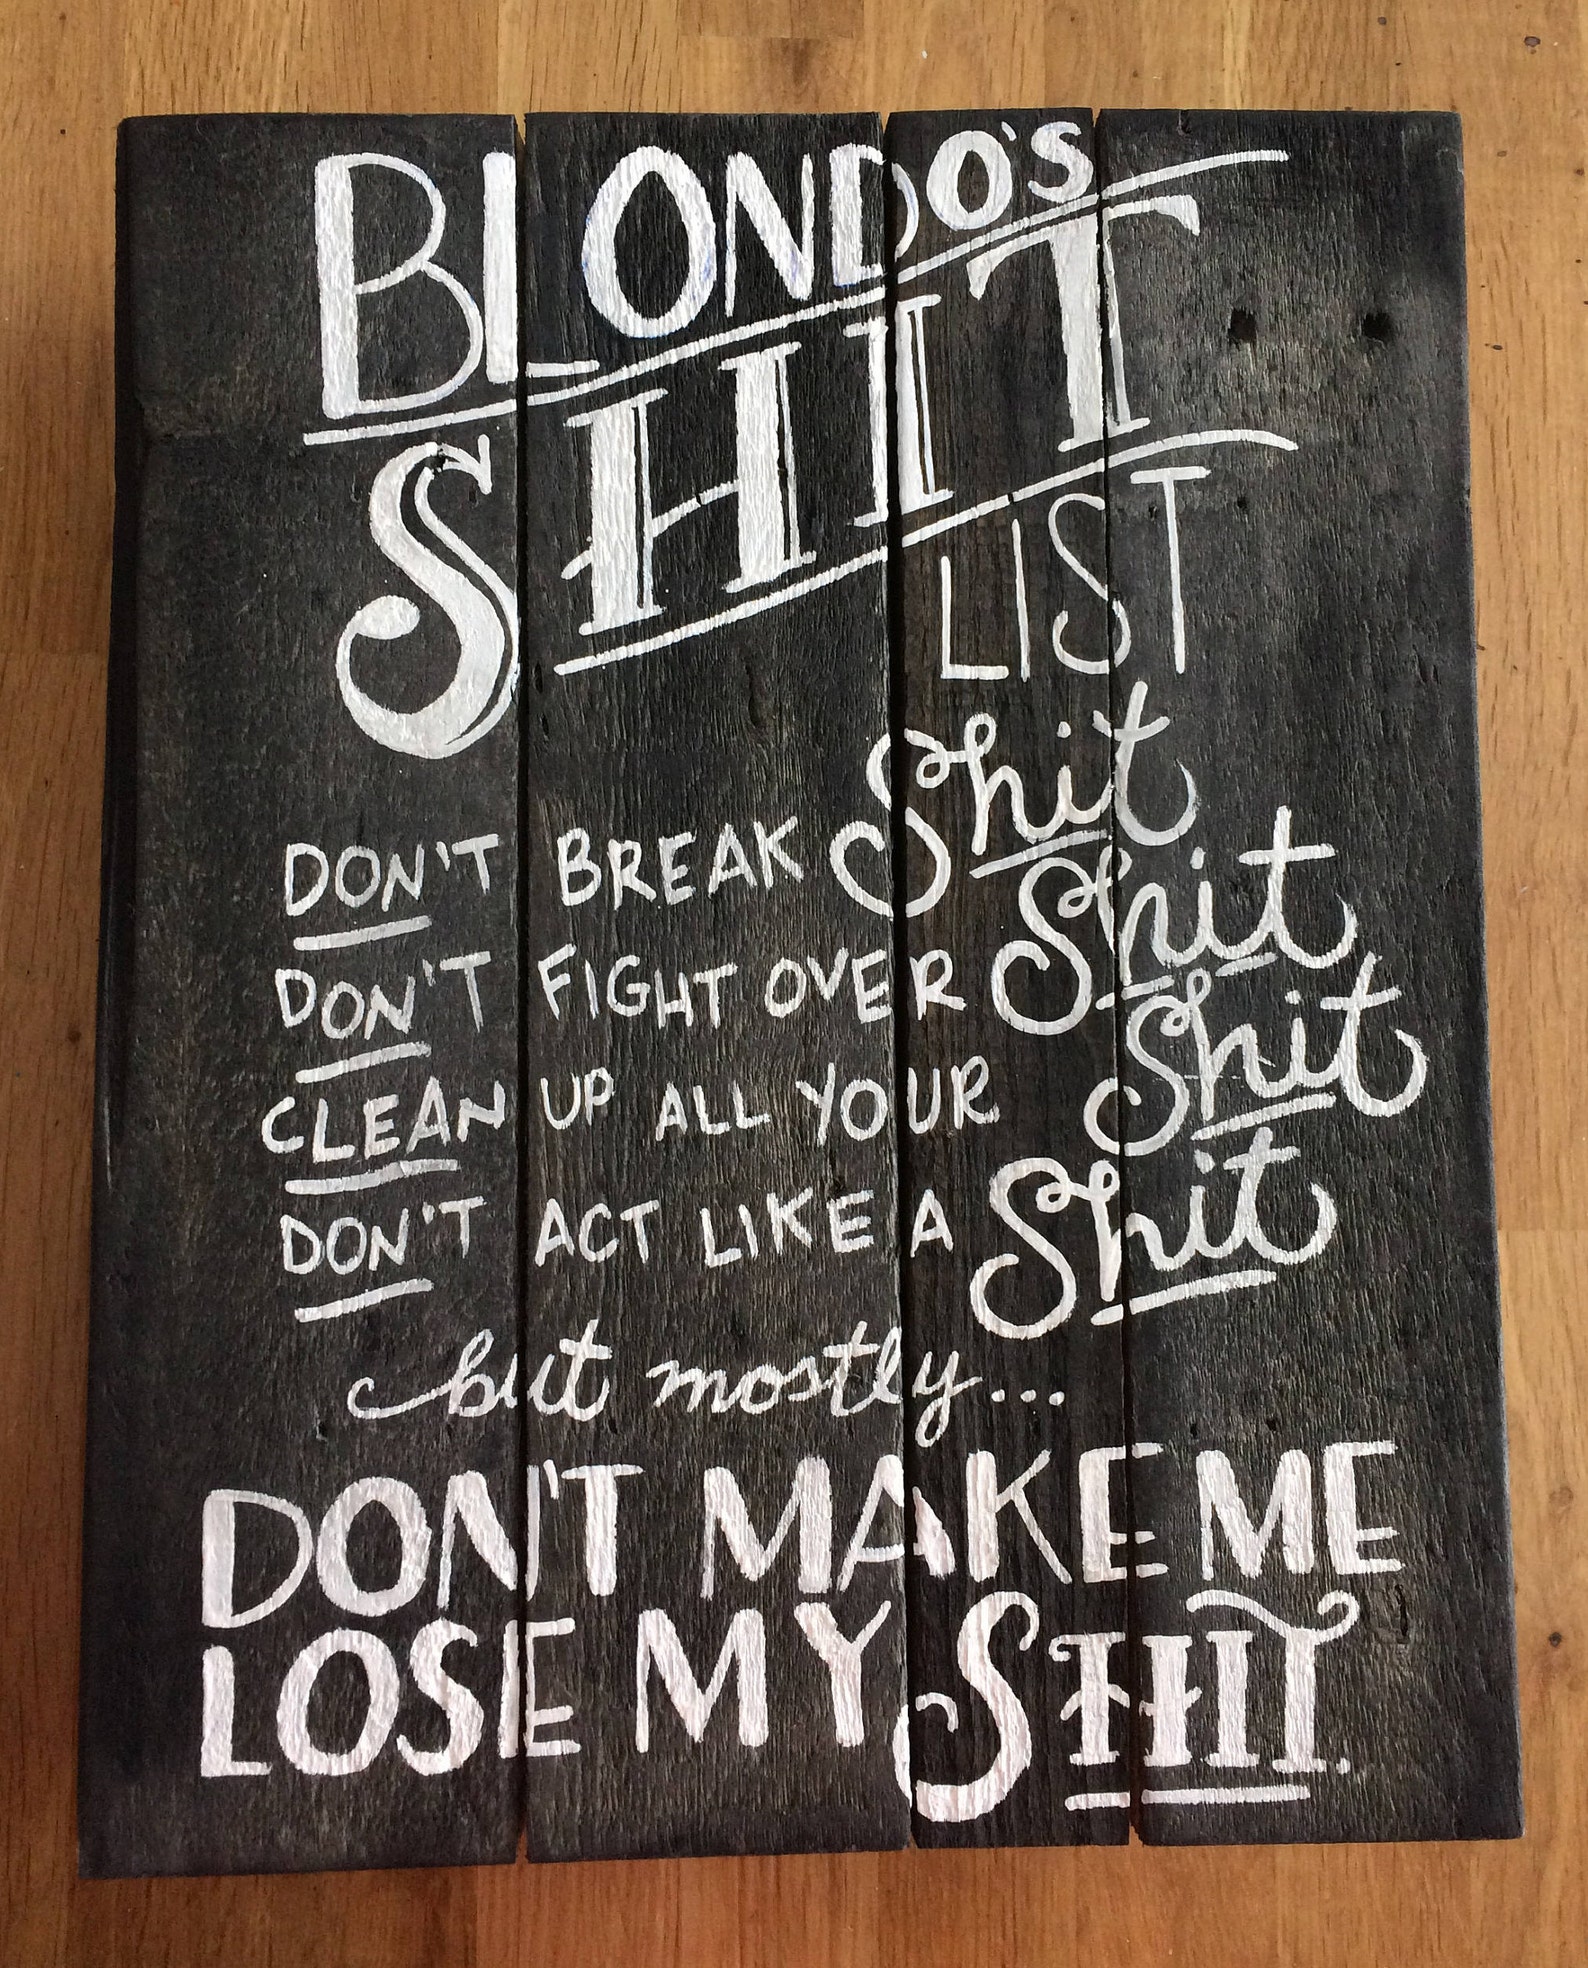 BLONDO'S
SHIT
LIST
DON'T BREAK Shit
DON'T FIGHT OVER Shit
CLEAN UP ALL YOUR Shit
DON'T ACT LIKE A Shit
but mostly...
DON'T MAKE ME
LOSE MY SHIT.